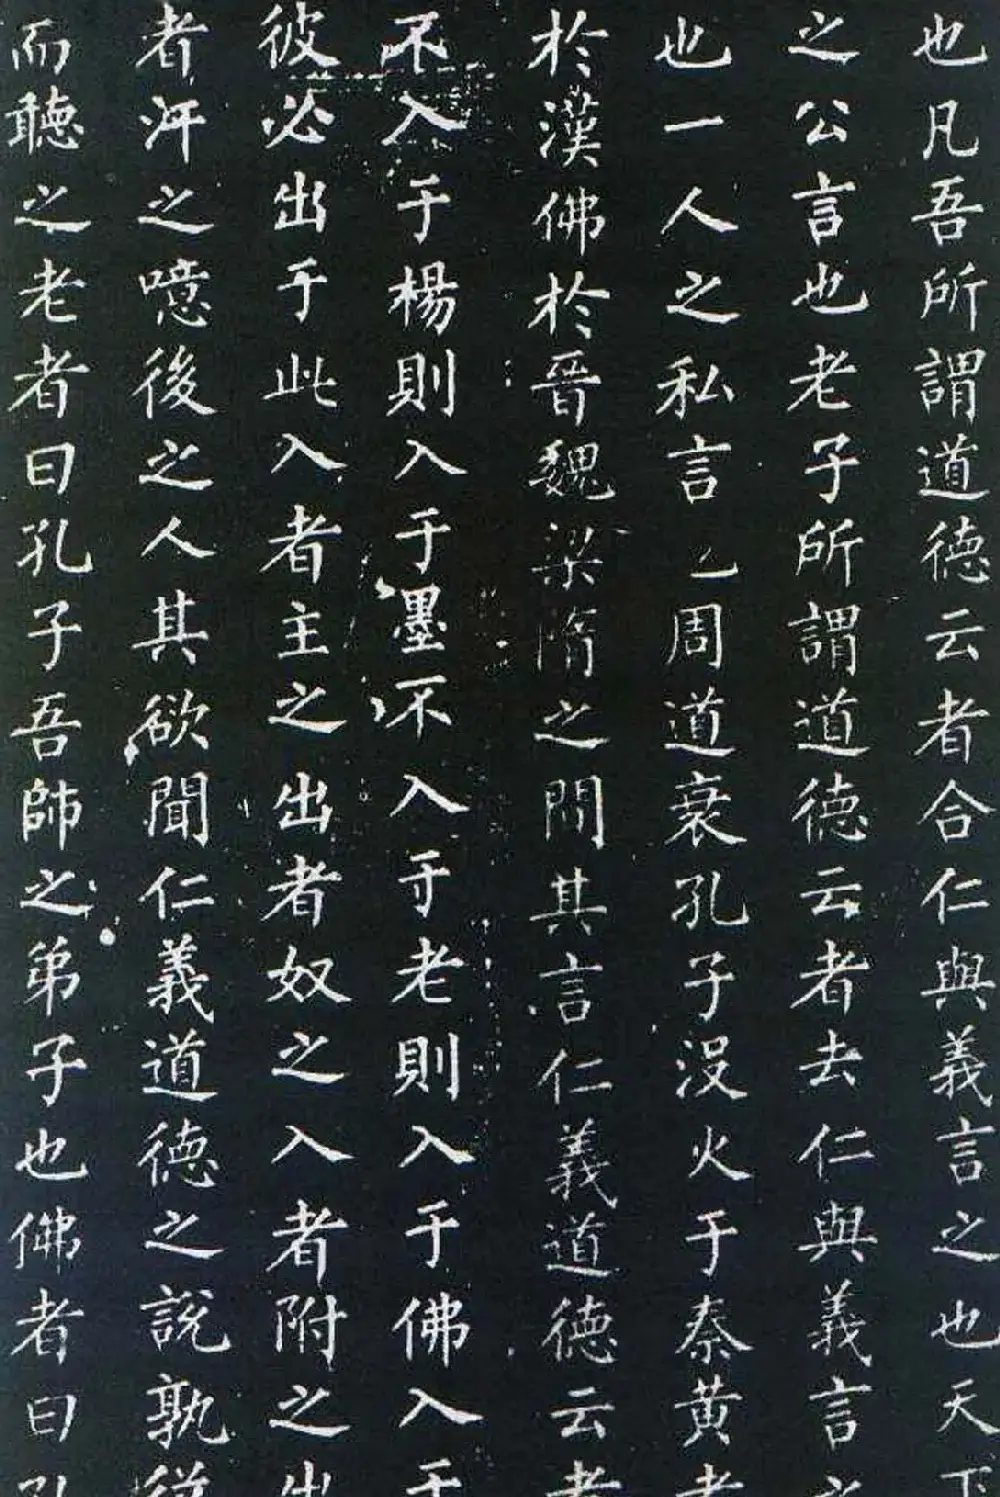 也凡吾所謂道德云者合仁與義言之也天下
之公言也老子所謂道德云者去仁與義言之
也一人之私言周道衰孔子没火于秦黄老
於漢佛於晉魏梁隋之間其言仁義道德云者
不入于楊則入于墨不入于老則入于佛入于
彼必出于此入者主之出者奴之入者附之出
者汙之噫後之人其欲聞仁義道德之説孰從
而聽之老者曰孔子吾師之弟子也佛者曰孔